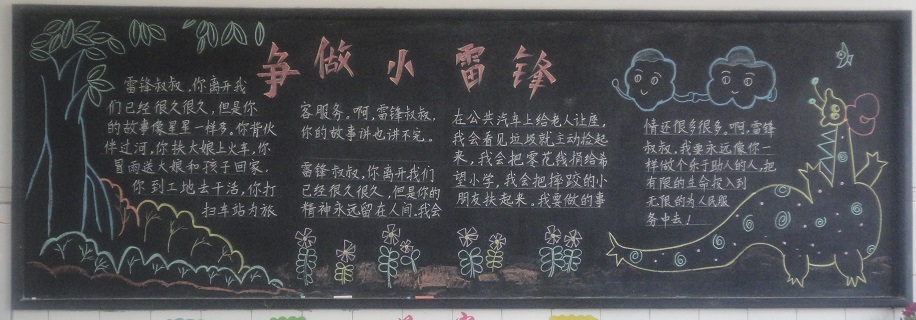 争做小雷锋
雷锋叔叔,你离开我
们已经很久很久,但是你
的故事像星星一样多。你背伙
伴过河,你扶大娘上火车,你
冒雨送大娘和孩子回家,
你到工地去干活,你打
扫车站为旅
客服务。啊,雷锋叔叔,
你的故事讲也讲不完。
雷锋叔叔,你离开我们
已经很久很久,但是你的
精神永远留在人间,我会
在公共汽车上给老人让座,
我会看见垃圾就主动捡起
来,我会把零花钱捐给希
望小学,我会把摔跤的小
朋友扶起来。我要做的事
情还很多很多。啊,雷锋
叔叔,我要永远像你一
样做个乐于助人的人,把
有限的生命投入到
无限的为人民服
务中去!